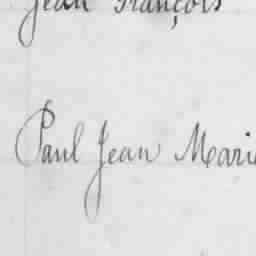 Jean François
Paul Jean Marie